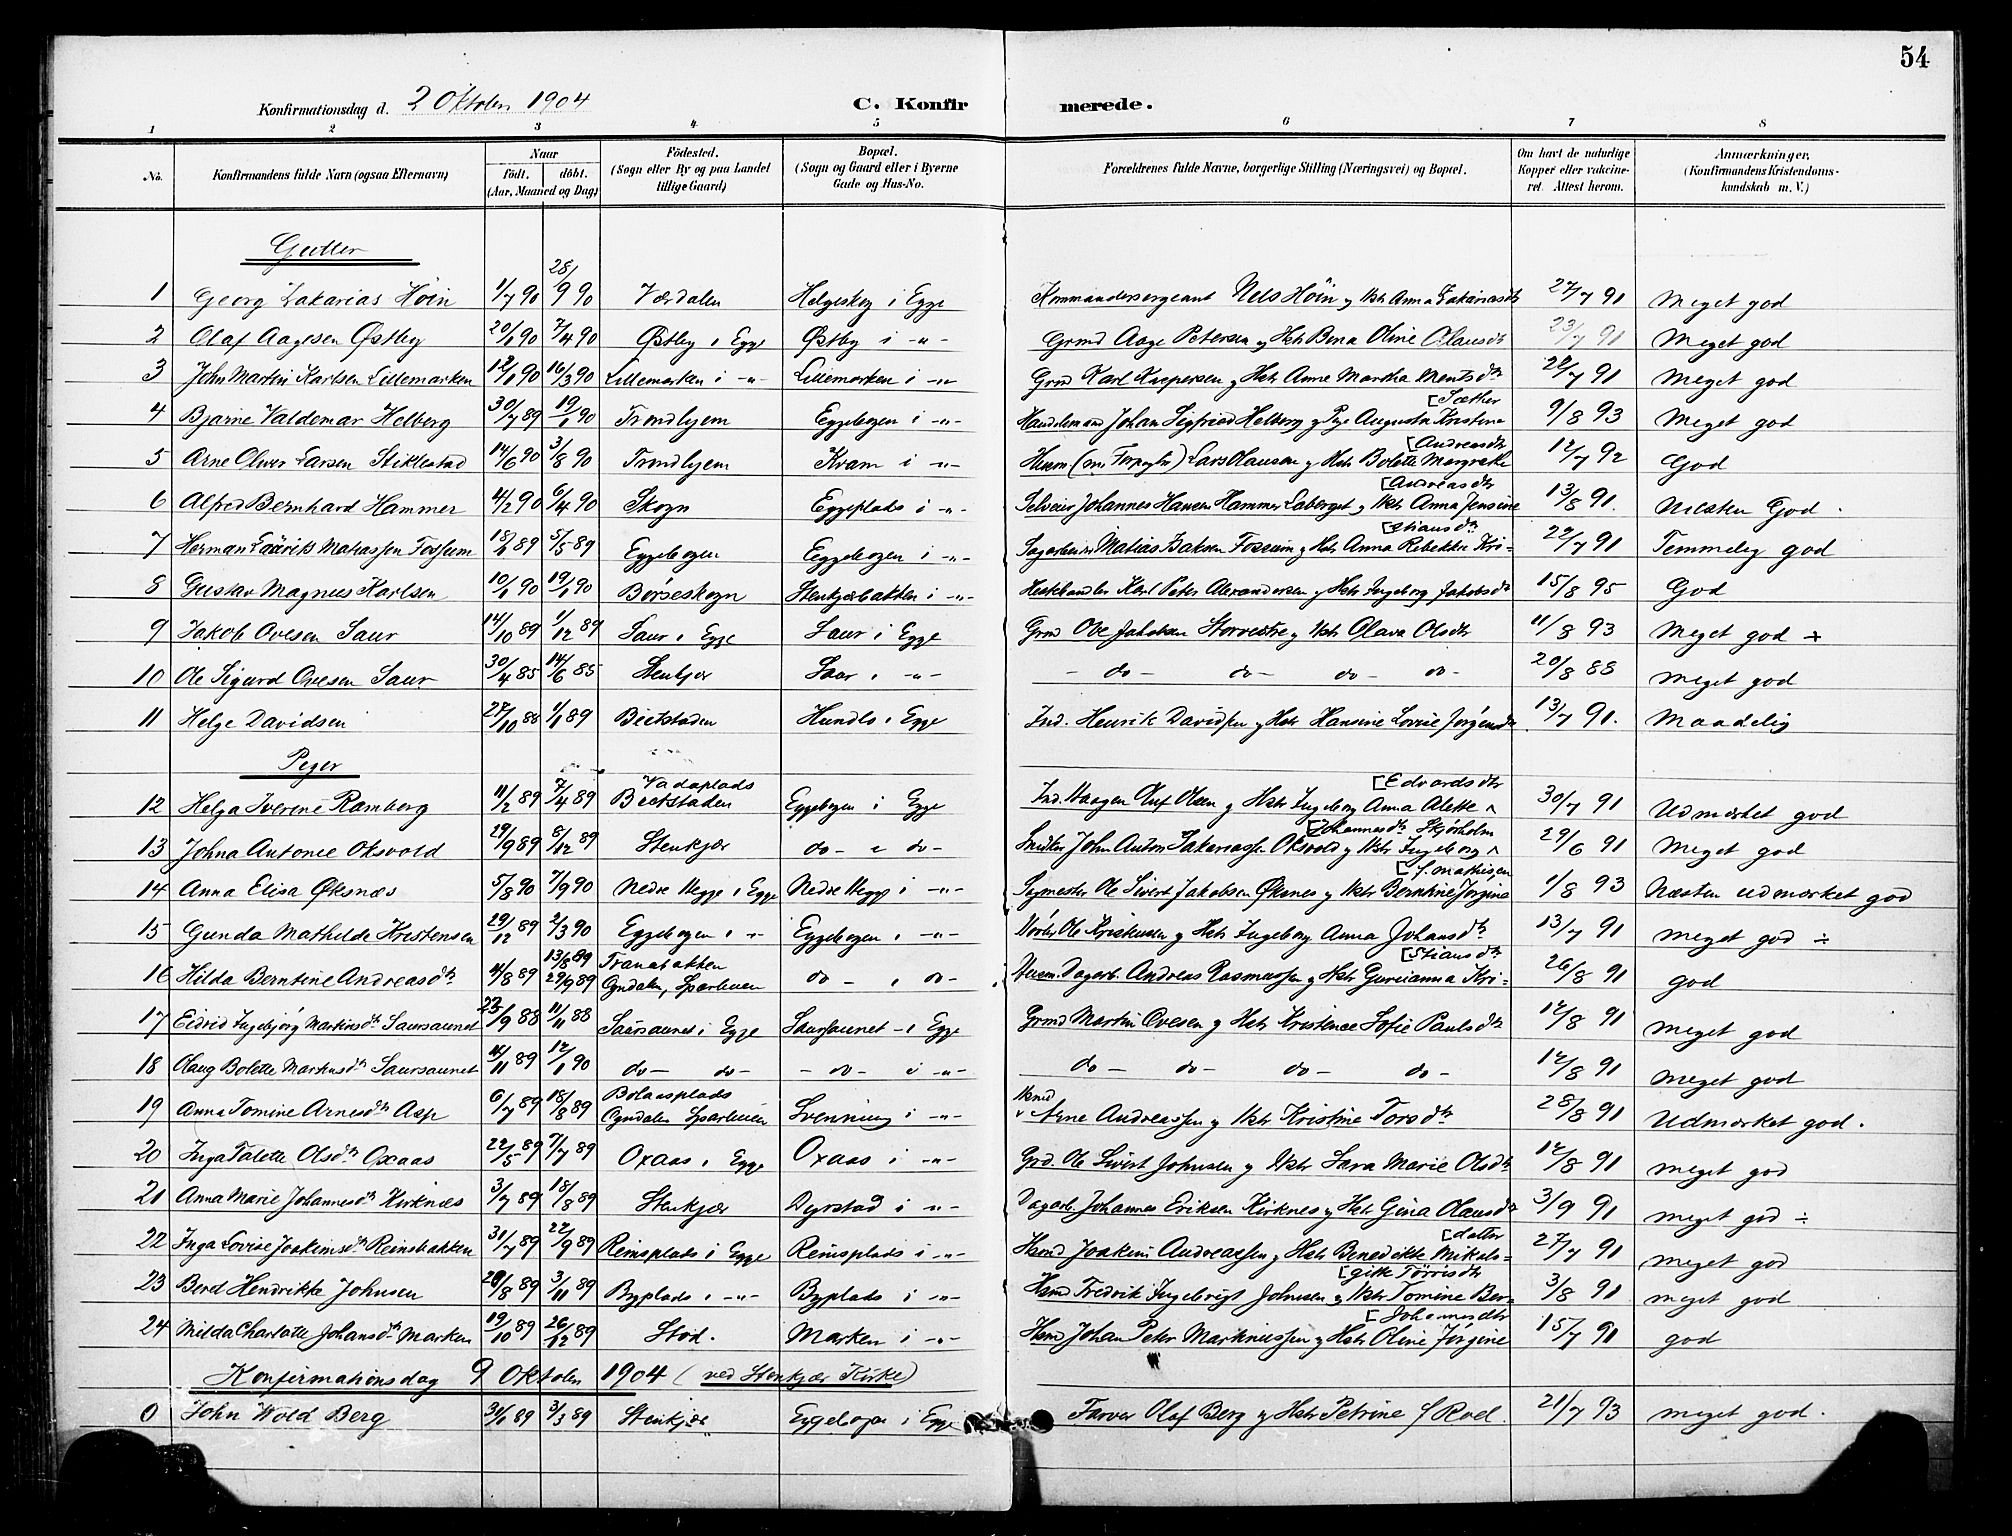 54
Konfirmationsdag d. 2 Oktober 1904 C. Konfirmerede.
1 2 3 4 5 6 7 8
No. Konfirmandens fulde Navn (ogsaa Efternavn) Naar födt. döbt. (Aar, Maaned og Dag) Födested. (Sogn eller By og paa Landet tillige Gaard) Bopæl. (Sogn og Gaard eller i Byerne Gade og Hus-No. Forældrenes fulde Navne, borgerlige Stilling (Næringsvei) og Bopæl. Om havt de naturlige Kopper eller vakcineret. Attest herom. Anmærkninger, (Konfirmandens Kristendomskundskab m. V.)
Gutter
1 Georg Zakarias Höin 11/7 90 28/9 90 Værdalen Helgeskog i Egge Kommandersergeant Nels Höin og Hstr Anna Zakariasdtr 27/7 91 Meget god
2 Olaf Aagesen Østby 20/1 90 7/4 90 Østby i Egge Østby i -"- Grmd Aage Petersen og Hstr Berna Oline Olausdtr 23/7 91 Meget god
3 John Martin Karlsen Lillemarken 12/1 90 16/3 90 Lillemarken i -"- Lillemarken i -"- Grmd Karl Kaspersen og Hstr Anne Martha Mentsdtr 22/7 91 Meget god
4 Bjarne Valdemar Helberg 30/7 89 19/1 90 Trondhjem Eggebogen i -"- Handelsmand Johan Sigfried Helberg og Pige Augusta Kristine [Sæther 9/8 93 Meget god
5 Arne Oluer Larsen Stiklestad 14/6 90 3/8 90 Trondhjem Kvam i -"- Lars Olausen og Hstr Bolette Margrethe [Andreasdtr 12/7 92 God
6 Alfred Bernhard Hammer 4/2 90 6/4 90 Skogn Eggeplads i -"- Selveier Johannes Hansen Hammer Laberget og Hstr Anna Jensine [Andreasdtr 13/8 91. Næsten God.
7 Herman Laurits Matiassen Fossum 18/1 89 5/5 89 Eggebogen Eggebogen i -"- Sagarbeider Matias Isaksen Fossum og Hstr Anna Rebekka Kri= [stiansdtr 22/7 91 Temmelig god
8 Gustav Magnus Karlsen 10/1 90 19/1 90 Børseskogn Stenkjærbakken i -"- Hestehandler Karl Peter Alexandersen og Hstr Ingeborg Jakobsdtr 15/8 95 God
9 Jakob Ovesen Saur 14/10 89 1/12 89 Saur i Egge Saur i Egge Grmd Ove Jakobsen Storvestre og Hstr Olava Olsdtr 11/8 93 Meget god +
10 Ole Sigurd Ovesen Saur 30/4 85 14/6 85 Stenkjær Saur i -"- - do - do - do - do - 20/8 88 Meget god
11 Helge Davidsen 27/10 88 1/1 89 Beitstaden Hundlo i Egge Ind. Henrik Davidsen og Hstr Hansine Lovise Jørgensdtr 13/7 91. Maadelig
Piger
12 Helga Iverine Ramberg 11/2 89 7/4 89 Vadaplads Beitstaden Eggebogen i Egge Ind. Haagen Oluf Olsen og Hstr Ingeborg Anna Alette [Edvardsdtr 30/7 91 Udmærket god
13 Johna Antonie Oksvold 29/9 89 8/12 89 Stenkjær do - i do - Snidker John Anton Zakariassen Oksvold og Hstr Ingeborg [Johannesdtr Skjørholm 29/6 91 Meget god
14 Anna Elisa Øksnæs 5/8 90 7/9 90 Nedre Hegge i Egge Nedre Hegge i -"- Sagmester Ole Sivert Jakobsen Øksnes og Hstr Berntine Jørgine [f. Mathisen 1/8 93 Næsten udmærket god
15 Gunda Mathilde Kristensen 29/12 89 2/3 90 Eggebogen i -"- Eggebogen i -"- Ole Kristensen og Hstr Ingeborg Anna Johansdtr 13/7 91 Meget god ÷
16 Hilda Berntine Andreasdtr 4/8 89 13/8 89 29/9 89 Tranabakken Ogndalen, Sparbuen do - i do - Dagarb. Andreas Rasmussen og Hstr Gurianna Kri= [stiansdtr 26/8 91 god
17 Eidrid Ingebjörg Martinsdtr Saursaunet 23/9 88 11/11 88 Saursaunet i Egge Saursaunet - i Egge Grmd Martin Ovesen og Hstr Kristence Sofie Paulsdtr 12/8 91 Meget god
18 Olaug Bolette Martinsdtr Saursaunet 14/11 89 12/1 90 do - do - - do - i -"- do - do - do - do - 12/8 91 Meget god
19 Anna Tomine Arnesdtr Asp 6/7 89 18/8 89 Bolaasplads Ogndalen Sparbuen Svenning i -"- Hsmd Arne Andreassen og Hstr Kristine Torsdtr 28/8 91 Udmærket god.
20 Inga Talette Olsdtr Oxaas 22/5 89 7/7 89 Oxaas i Egge Oxaas i -"- Grd. Ole Sivert Johnsen og Hstr Sara Marie Olsdtr 12/8 91 Meget god
21 Anna Marie Johannesdtr Kirknæs 3/7 89 18/8 89 Stenkjær Dyrstad i -"- Dagarb. Johannes Eriksen Kirknes og Hstr Gina Olausdtr 3/9 91 Meget god ÷
22 Inga Lovise Joakimsdtr Reinsbakken 31/7 89 22/9 89 Reinsplads i Egge Reinsplads i -"- Hsmd Joakim Andreassen og Hstr Benedikte Mikals= [datter 27/7 91 Meget god
23 Berd Hendrikke Johnsen 28/8 89 3/11 89 Byplads i -"- Byplads i -"- Hsmd Fredrik Ingebrigt Johnsen og Hstr Tomine Ber= [gitte Törrisdtr 3/8 91 Meget god
24 Milda Charlotte Johansdtr Marken 19/10 89 26/12 89 Stod. Marken i -"- Hsmd Johan Peter Markussen og Hstr Oline Jørgine [Johannesdtr 15/7 91 god
Konfirmationsdag 9 Oktober 1904 (ved Stenkjær Kirke)
0 John Wold Berg 31/1 89 3/3 89 Stenkjær Eggebogen i Egge Farver Olaf Berg og Hstr Petrine f Roel. 21/7 93 Meget god.